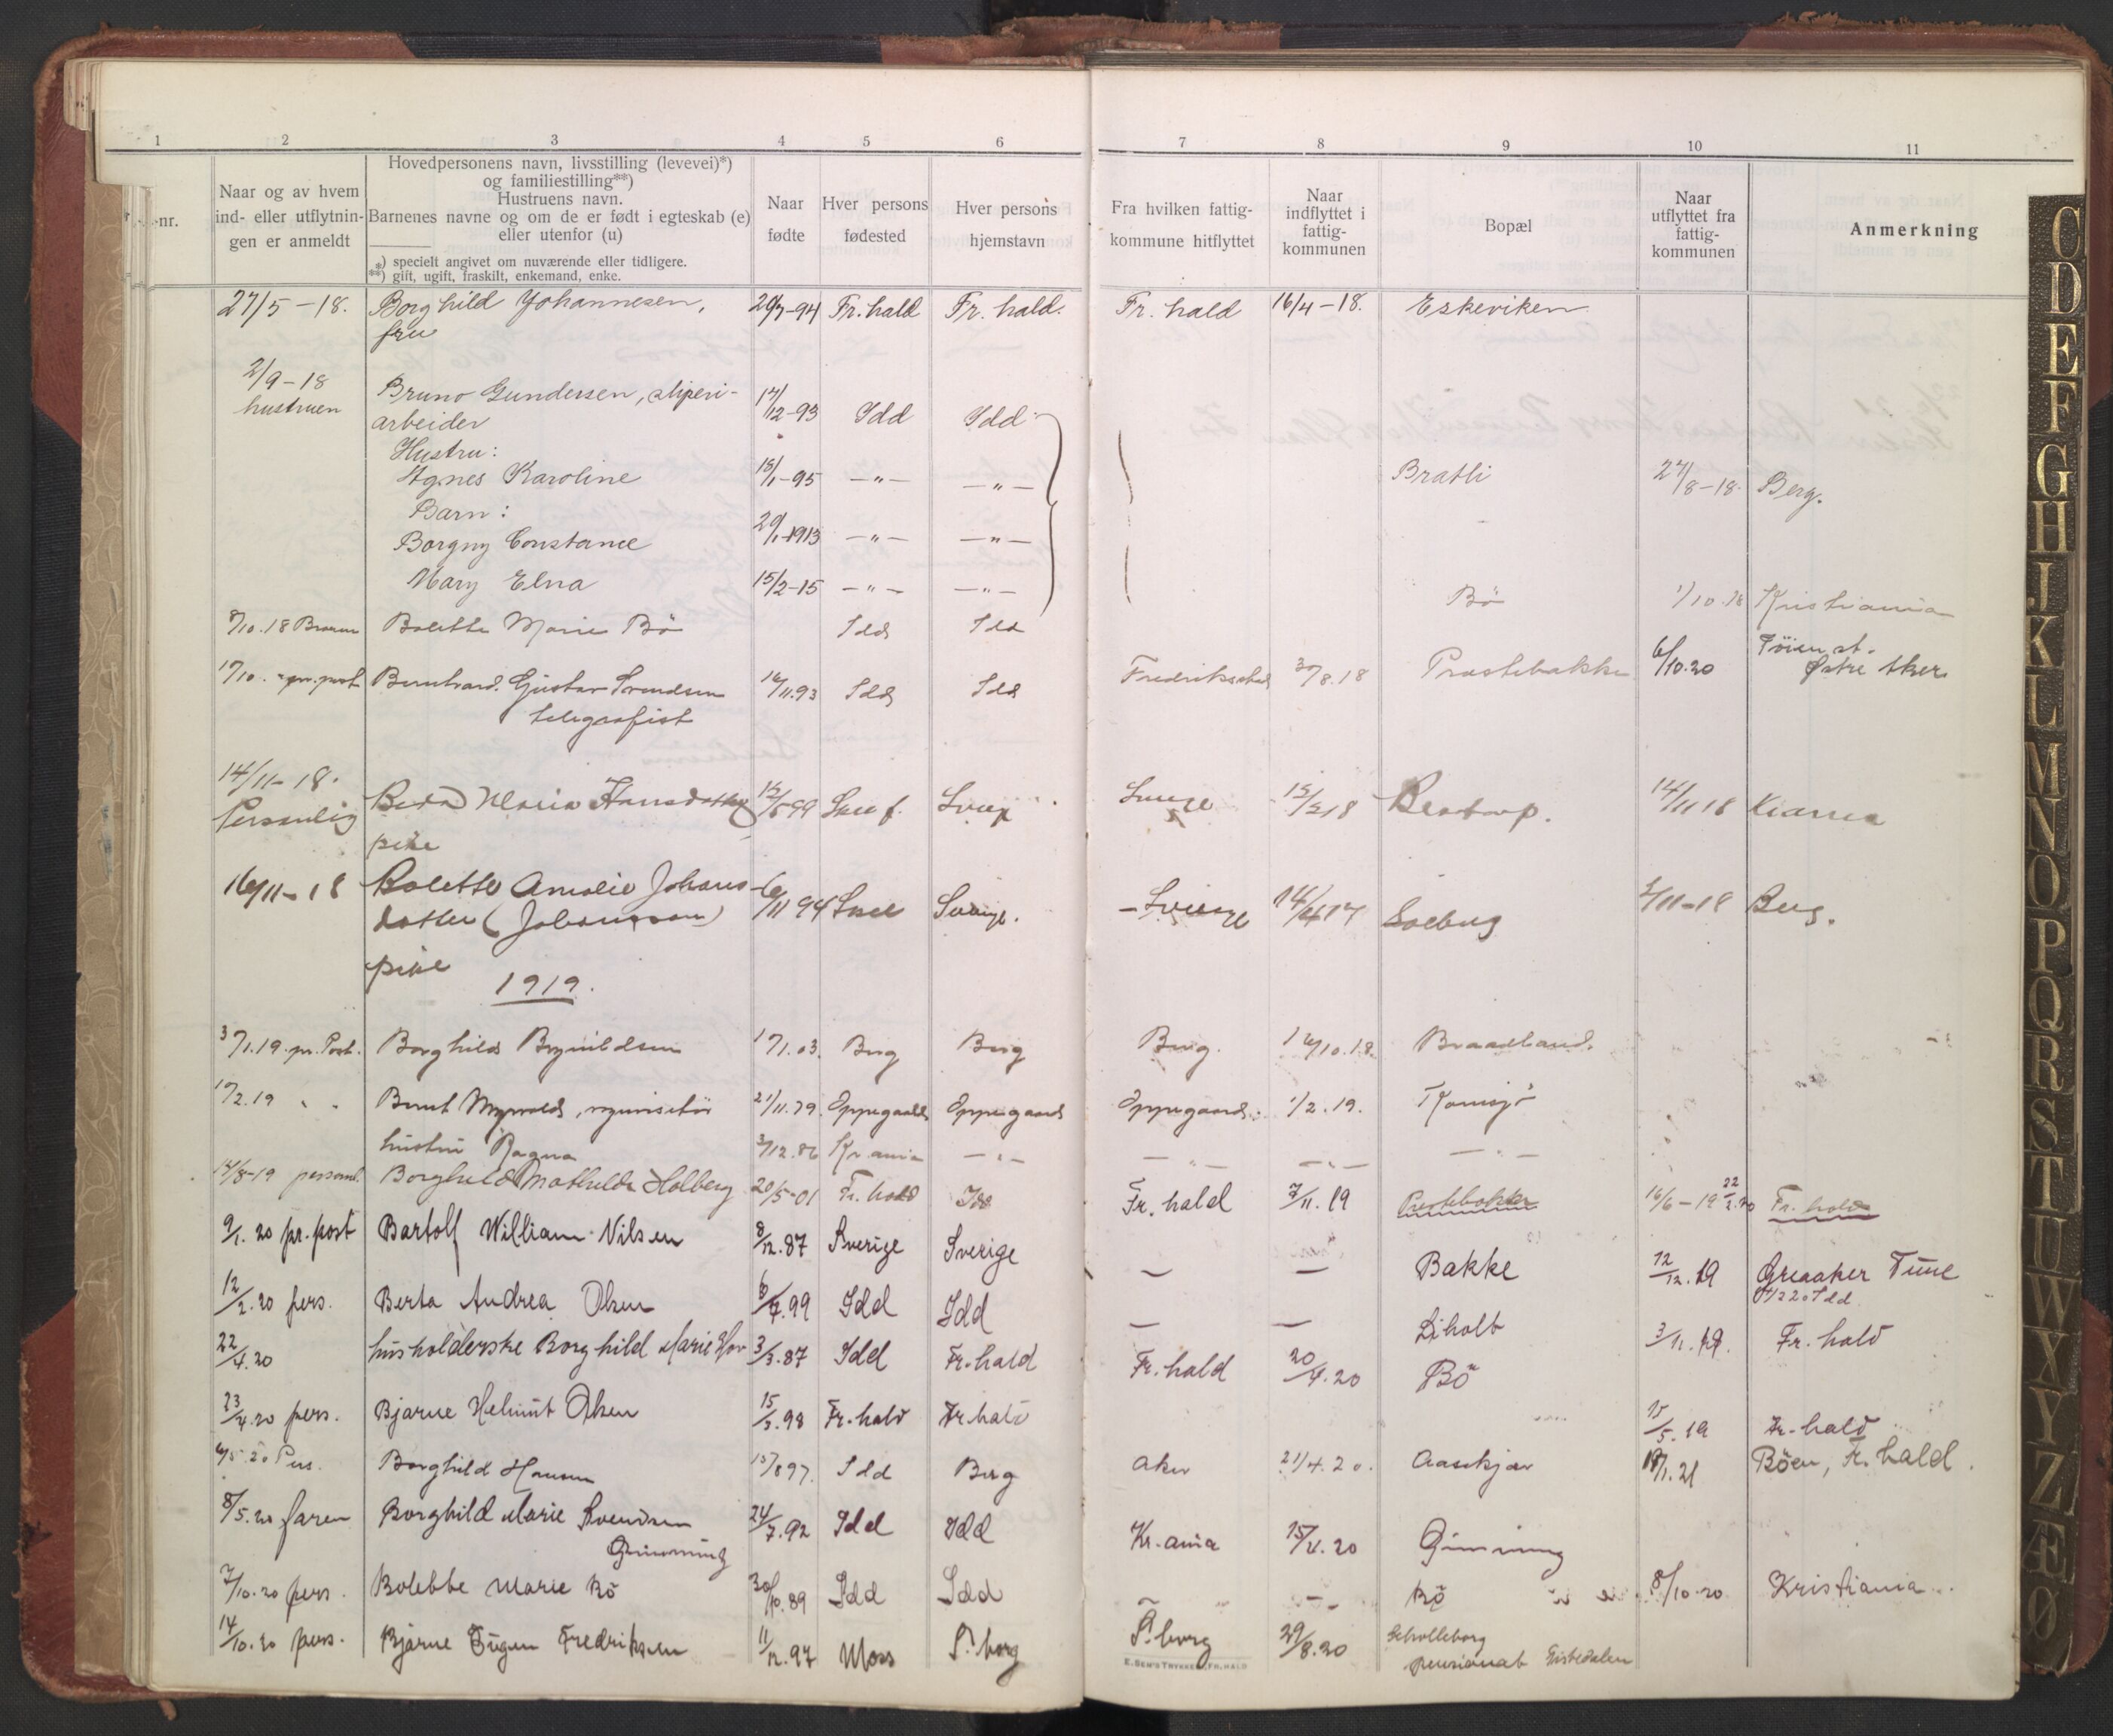 1 2 3 4 5 6 7 8 9 10 11
nr.
Naar og av hvem
ind- eller utflytnin-
gen er anmeldt
Hovedpersonens navn, livsstilling (levevei)*)
og familiestilling**)
Hustruens navn.
Barnenes navne og om de er født i egteskab (e)
eller utenfor (u)
*) specielt angivet om nuværende eller tidligere.
**) gift, ugift, fraskilt, enkemand, enke.
Naar
fødte
Hver persons
fødested
Hver persons
hjemstavn
Fra hvilken fattig-
kommune hitflyttet
Naar
indflyttet i
fattig-
kommunen
Bopæl
Naar
utflyttet fra
fattig-
kommunen
Anmerkning
27/5-18. Borghild Johannesen, Fr. hald Fr. hald. Fr. hald 16/4-18. Eskeviken
fru
2/9-18 Bruno Gundersen, sliperi- 17/12-93 Idd Idd
hustruen arbeider
Hustru:
Agnes Karoline 18/1-95 -"- -"- Bratli 27/8-18. Berg.
Barn:
Borgny Constance 29/1-1913 -"- -"-
Mary Elna 15/2-15 -"- -"-
8/10.18 Bolette Marie Bö Idd Idd Bö 1/10.18 Kristiania
17/10. " pr. post Bernhard Gustav Svendsen 16/11.93 Idd Idd Fredriksstad 30/8.18 Prestebakke 6/10.20 Töien st.
Østre Aker
telegrafist
14/11-18.
Personlig Maria Hansdatter Sverige 14/11 18
pike
16/11-18 Bolette Amalie Johans- 6/11 94 Sverige. Sverige 14/4 17 2/11-18 Berg.
datter (Johansson)
pike
1919.
3/1.19. pr. Post. Borghild Brynildsen 1/1.03. Berg Berg Berg. 16/10.18. Braadland.
1/2.19 " " Bernt Myrvold, 21/11.79. Oppegaard Oppegaard Oppegaard. 1/2.19. Kornsjö
hustru Ragna 3/12.86 Kr.ania -"- -"- -"- -"-
14/8-19 personl. Borghild Mathilde Holberg 20/5-01 Fr. hald Idd Fr. hald 7/11.19 Prestebakke 16/6-19 22/2.20 Fr. hald
9/1.20 pr. post Bartolf William Nilsen 8/12.87 Sverige Sverige — — Bakke 12/12.19 Greaaker Tune
12/2.20 pers. Berta Andrea Olsen 6/7.99 Idd Idd — — Liholt 3/11.19. Fr. hald
22/4.20 husholderske Borghild Marie Hov 3/3.87 Idd Fr. hald Fr. hald 20/4.20 Bö
23/4.20 pers. Bjarne Helmut Olsen 15/3.98 Fr. hald Fr. hald 15/5.19 Fr. hald
6/5.20 Pers. Borghild Hansen 15/8 97. Idd Berg Aker 21/4.20. Aaskjær 18/1.21 Böen, Fr. hald.
8/5.20 faren Borghild Marie Svendsen 24/7.92 Idd Idd Kr.ania 15/4.20 Gimming
Gimming
7/10.20 pers. Bolette Marie Bö 30/10.89 Idd Idd — Bö 8/10-20. Kristiania
14/10.20 pers. Bjarne Eugen Fredriksen 11/12.97 Moss S. borg S. borg 29/8.20 Schulleborg
pensionat Enebdalen
E. SEM'S TRYKKERI, FR.HALD
C
D
E
F
G
H
J
K
L
M
N
O
P
Q
R
S
T
U
W
X
Y
Z
Æ
Ø